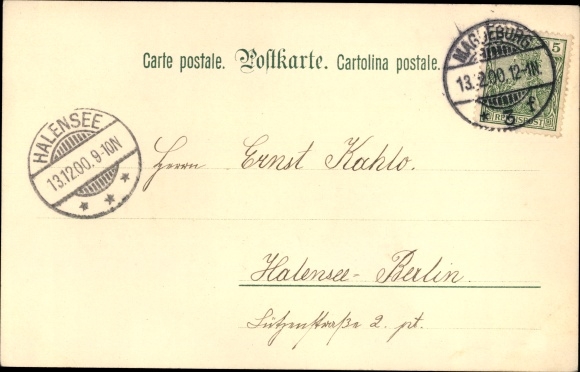 Carte postale. Postkarte. Cartolina postale.
MAGDEBURG
13.12.00.12-1N.
* 5 f
5
REICHSPOST
HALENSEE
13.12.00.9-10N
* * *
Herrn Ernst Kahlo.
Halensee-Berlin.
Lützenstraße 2. pt.